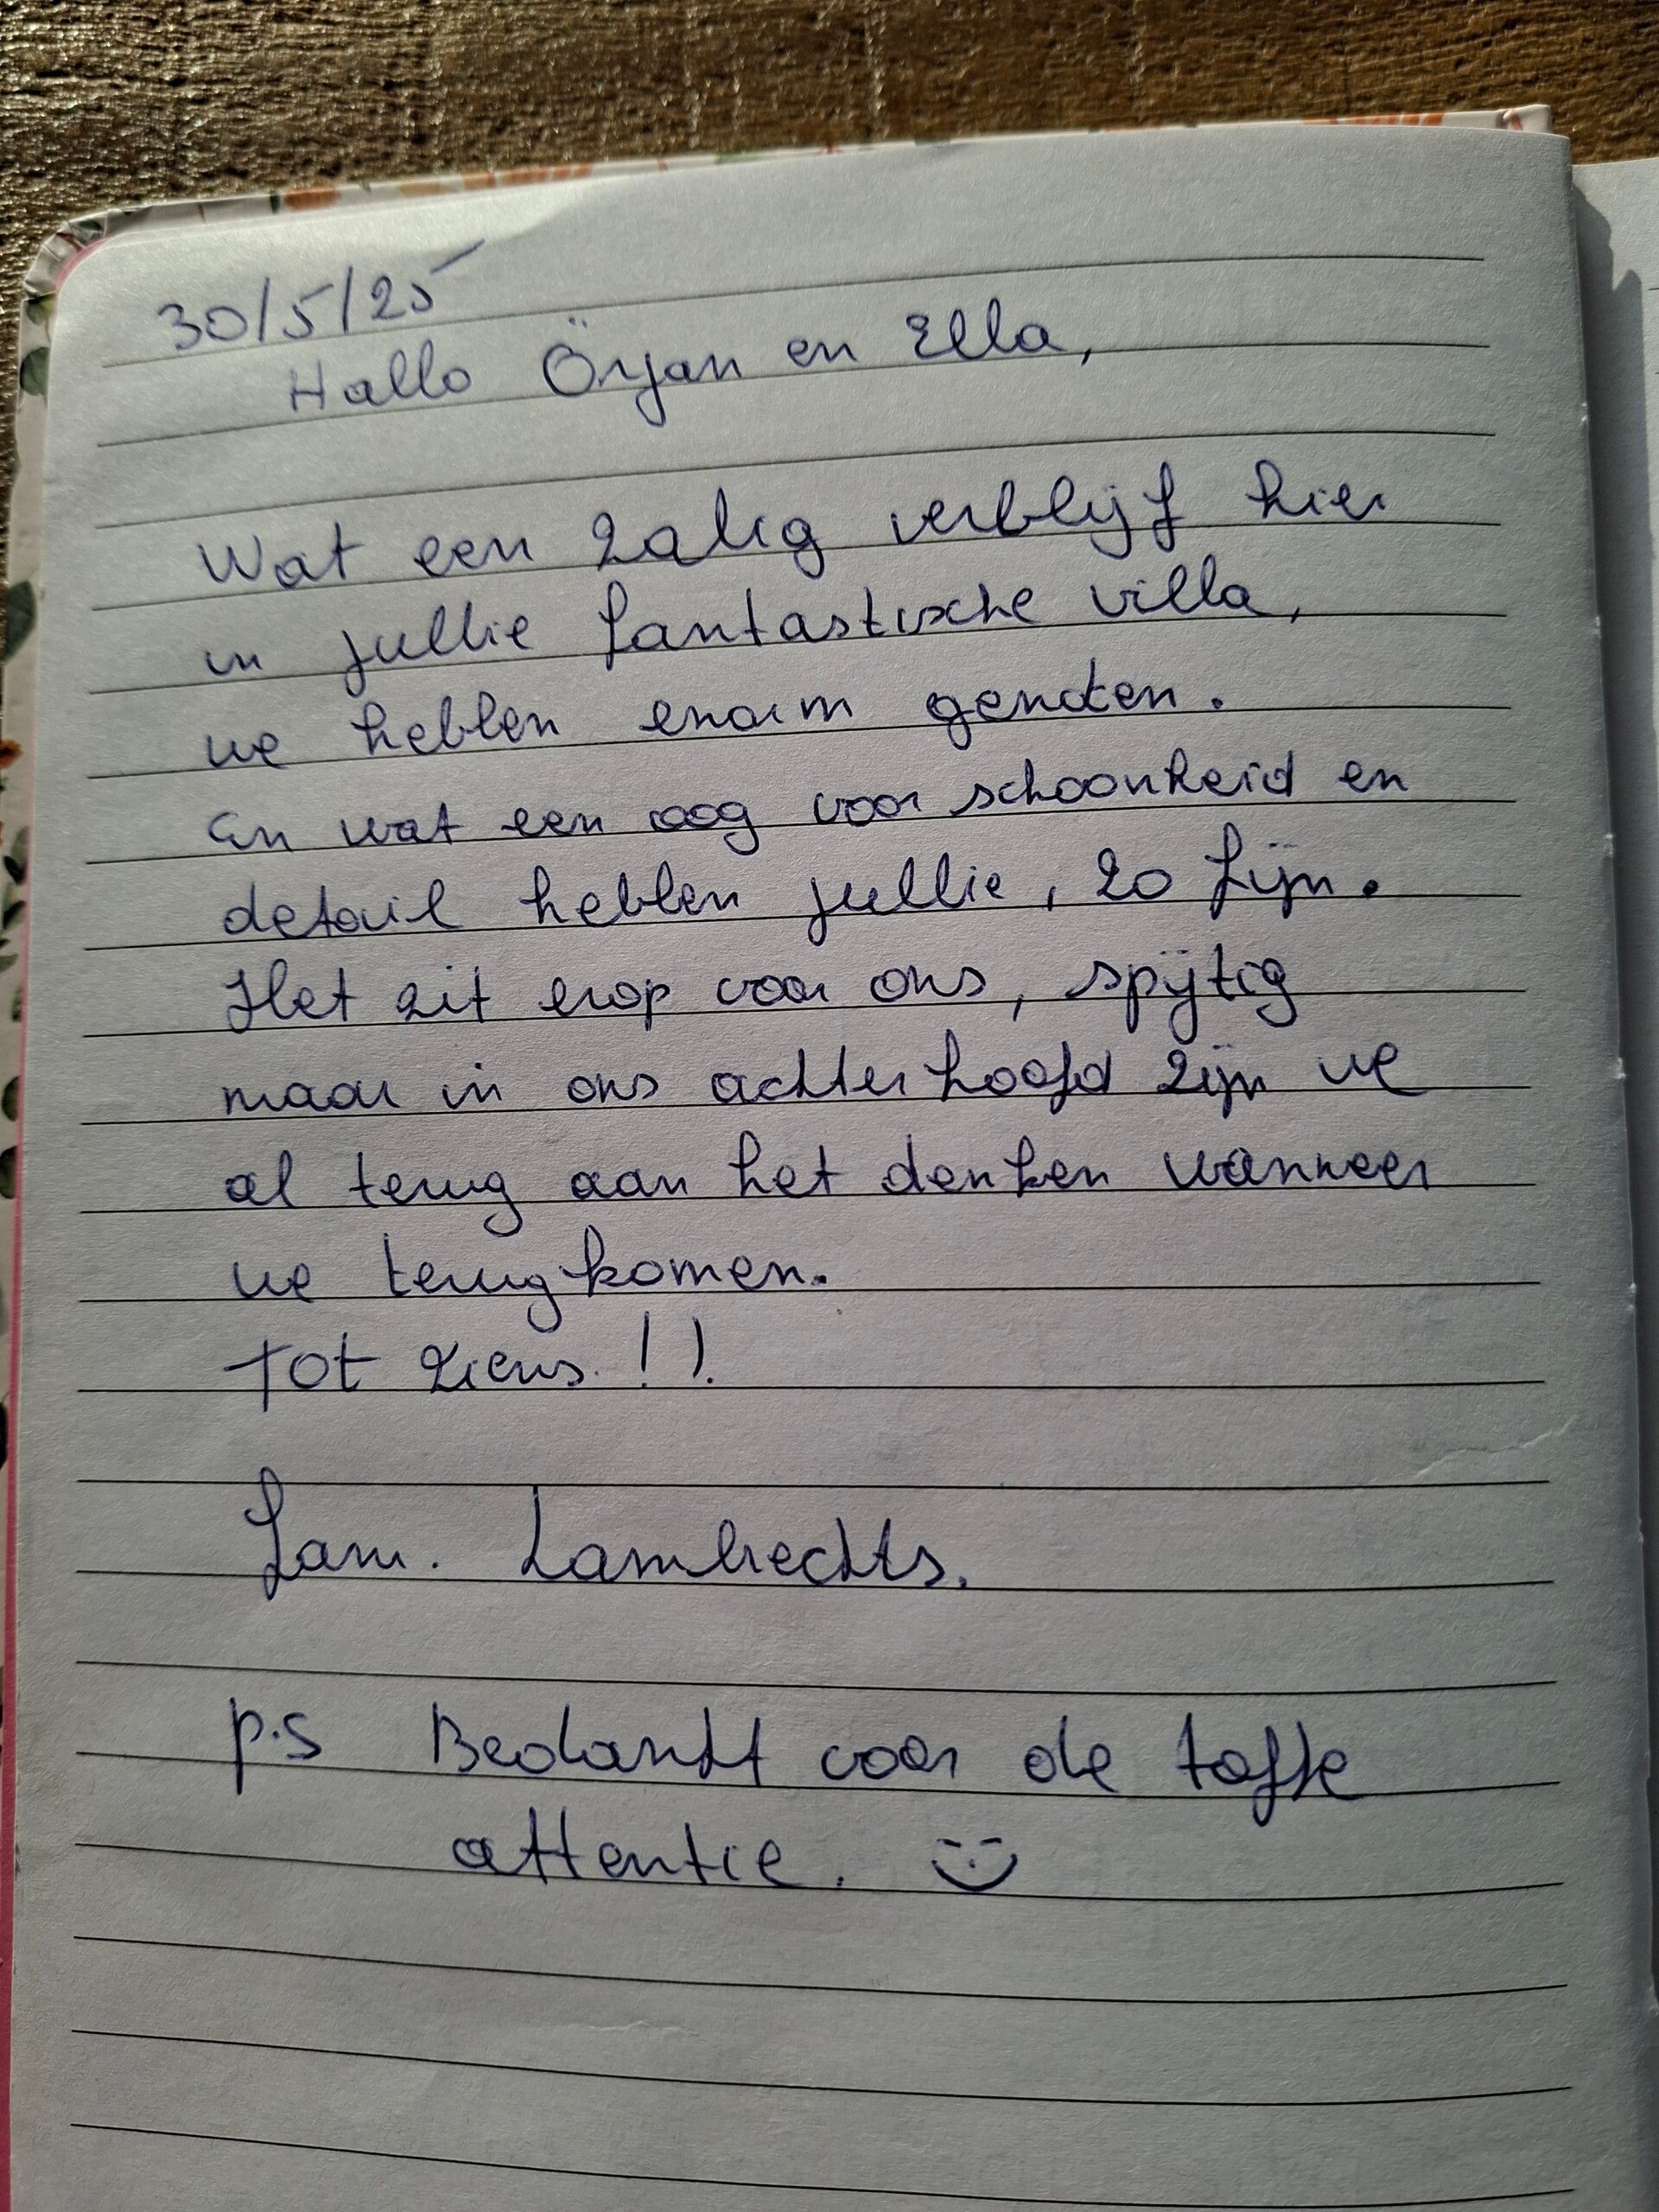 30/5/25
Hallo Örjan en Ella,
Wat een zalig verblijf hier
in jullie fantastische villa,
we hebben enorm genoten.
En wat een oog voor schoonheid en
detail hebben jullie, zo fijn.
Het zit erop voor ons, spijtig
maar in ons achterhoofd zijn we
al terug aan het denken wanneer
we terugkomen.
Tot ziens. !!
fam. Lambrechts.
p.s Bedankt voor de toffe
attentie. :)